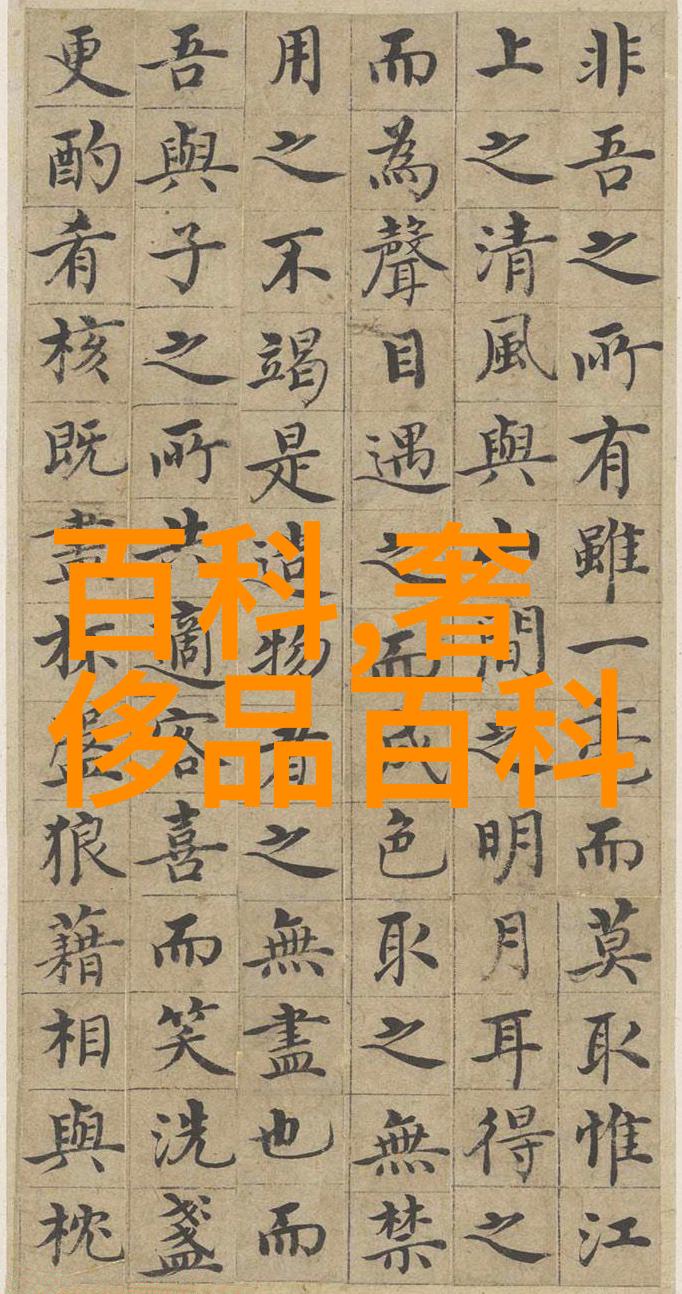 非吾之所有雖一毫而莫取惟江
上之清風與山間之明月耳得之
而為聲目遇之而成色取之無禁
用之不竭是造物者之無盡也而
吾與子之所共適客喜而笑洗盞
更酌肴核既盡杯盤狼藉相與枕
百科,奢
侈品百科